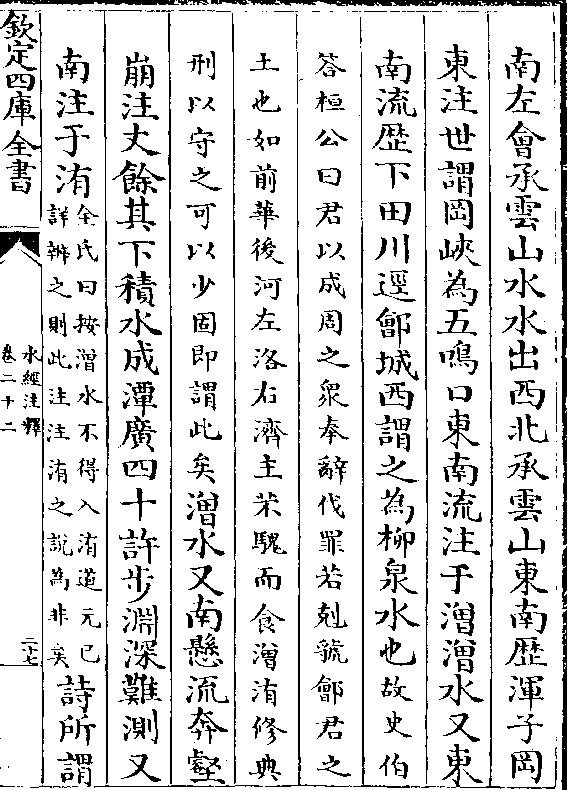 南左會承雲山水水出西北承雲山東南歴渾子岡
東注世謂岡峽為五鳴口東南流注于潧潧水又東
南流歴下田川逕鄶城西謂之為柳泉水也故史伯
答桓公曰君以成周之衆奉辭伐罪若尅虢鄶君之
土也如前華後河左洛右濟主芣騩而食潧洧修典
刑以守之可以少固即謂此矣潧水又南懸流奔壑
崩注丈餘其下積水成潭廣四十許步淵深難測又
南注于洧全氏曰按潧水不得入洧道元已詳辨之則此注注洧之説為非矣詩所謂
欽定四庫全書
水經注釋
卷二十二
二十七